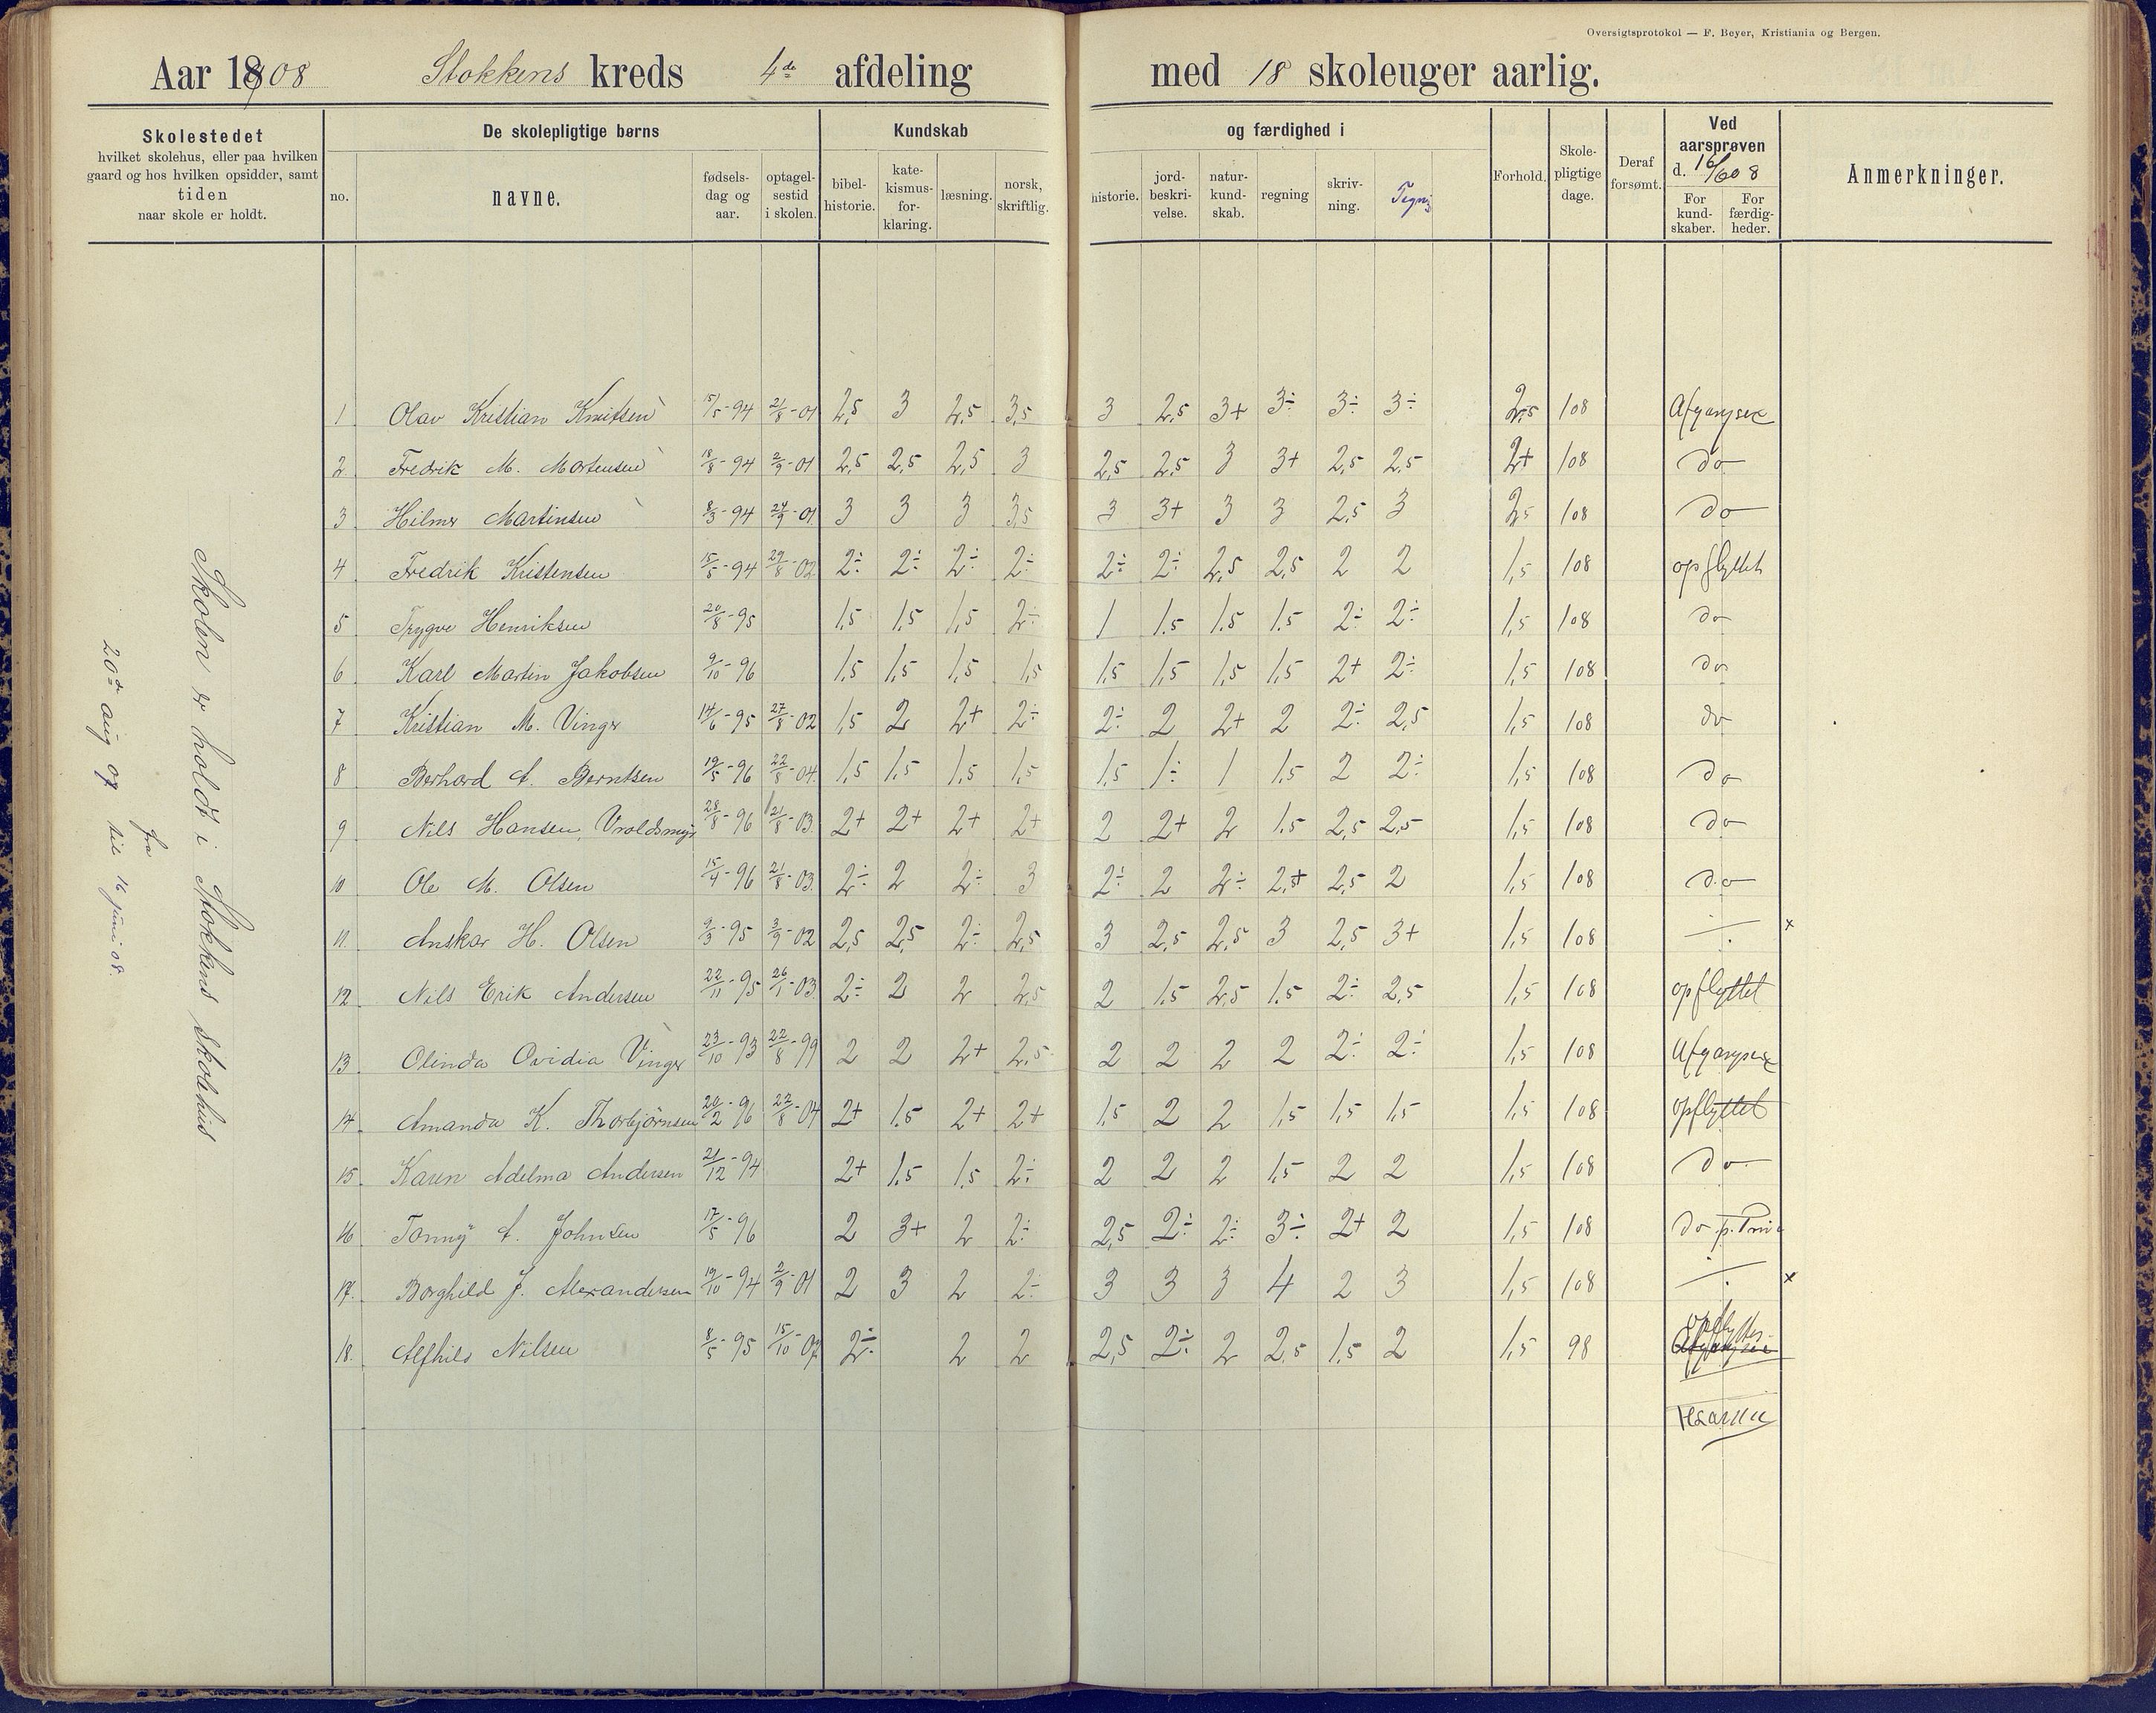 Oversigtsprotokol — F. Beyer, Kristiania og Bergen.
Aar 1908 Stokkens kreds 4de afdeling med 18 skoleuger aarlig.
Skolestedet
hvilket skolehus, eller paa hvilken
gaard og hos hvilken opsidder, samt
tiden
naar skole er holdt.
De skolepligtige børns
no. navne. fødsels-dag og aar. optagel-sestid i skolen.
Kundskab og færdighed i
bibel-historie. kate-kismus-for-klaring. læsning. norsk, skriftlig. historie. jord-beskri-velse. natur-kund-skab. regning skriv-ning. Tegnig
Forhold. Skole-pligtige dage. Deraf forsømt.
Ved aarsprøven d. 16/6 08
For kund-skaber. For færdig-heder.
Anmerkninger.
Skolen er holdt i Stokkens skolehus
fra
20de aug 07 til 16 juni 08.
1 Olav Kristian Knutsen 15/5-94 21/8-01 2,5 3 2,5 3,5 3 2,5 3+ 3÷ 3÷ 3÷ 2,5 108
2 Fredrik M. Mortensen 18/8-94 2/9-01 2,5 2,5 2,5 3 2,5 2,5 3 3+ 2,5 2,5 2+ 108 do
3 Hilmer Martinsen 8/3-94 24/9-01 3 3 3 3,5 3 3+ 3 3 2,5 3 2,5 108 do
4 Fredrik Kristensen 15/5-94 29/8-02 2÷ 2÷ 2÷ 2÷ 2÷ 2÷ 2,5 2,5 2 2 1,5 108 opflyttet
5 Trygve Henriksen 20/8-95 1,5 1,5 1,5 2÷ 1 1.5 1.5 1.5 2÷ 2÷ 1,5 108 do
6 Karl Martin Jakobsen 9/10-96 1,5 1,5 1,5 1,5 1,5 1,5 1,5 1,5 2+ 2÷ 1,5 108 do
7 Kristian M. Vinger 14/6-95 27/8-02 1,5 2 2+ 2÷ 2÷ 2 2+ 2 2÷ 2,5 1,5 108 do
8 Berhard A. Berntsen 19/5-96 22/8-04. 1,5 1,5 1,5 1,5 1,5 1÷ 1 1,5 2 2÷ 1,5 108 do
9 Nils Hansen, Vroldsmyr 28/8-96 21/8-03. 2+ 2+ 2+ 2+ 2 2+ 2 1.5 2,5 2,5 1,5 108 do
10 Ole M. Olsen 15/4-96 21/8-03. 2÷ 2 2÷ 3 2÷ 2 2÷ 2,5+ 2,5 2 1,5 108 do
11. Anskar H. Olsen 9/3-95 3/9-02 2,5 2,5 2÷ 2,5 3 2,5 2,5 3 2,5 3+ 1,5 108 ÷ x
12. Nils Erik Andersen 22/11-95 26/1-03. 2÷ 2 2 2,5 2 1.5 2,5 1.5 2÷ 2,5 1,5 108 opflyttet
13. Olinda Ovidia Vinger 23/10-93 22/8-99 2 2 2+ 2,5 2 2 2 2 2÷ 2÷ 1,5 108
14. Amanda K. Thorbjörnsen 20/2-96 22/8-04 2+ 1.5 2+ 2+ 1.5 2 2 1,5 1,5 1,5 1,5 108 opflyttet
15. Karen Adelma Andersen 21/12-94 2+ 1,5 1.5 2÷ 2 2 2 1,5 2 2 1,5 108 do
16 Tonny A. Johnsen 17/5-96 2 3+ 2 2÷ 2,5 2÷ 2÷ 3÷ 2+ 2 1,5 108 do
17. Borghild J. Alexandersen 19/10-94 2/9-01 2 3 2 2÷ 3 3 3 4 2 3 1,5 108 ÷ x
18. Alfhild Nilsen 8/5-95 15/10-07 2÷ 2 2 2,5 2÷ 2 2,5 1.5 2 1,5 98